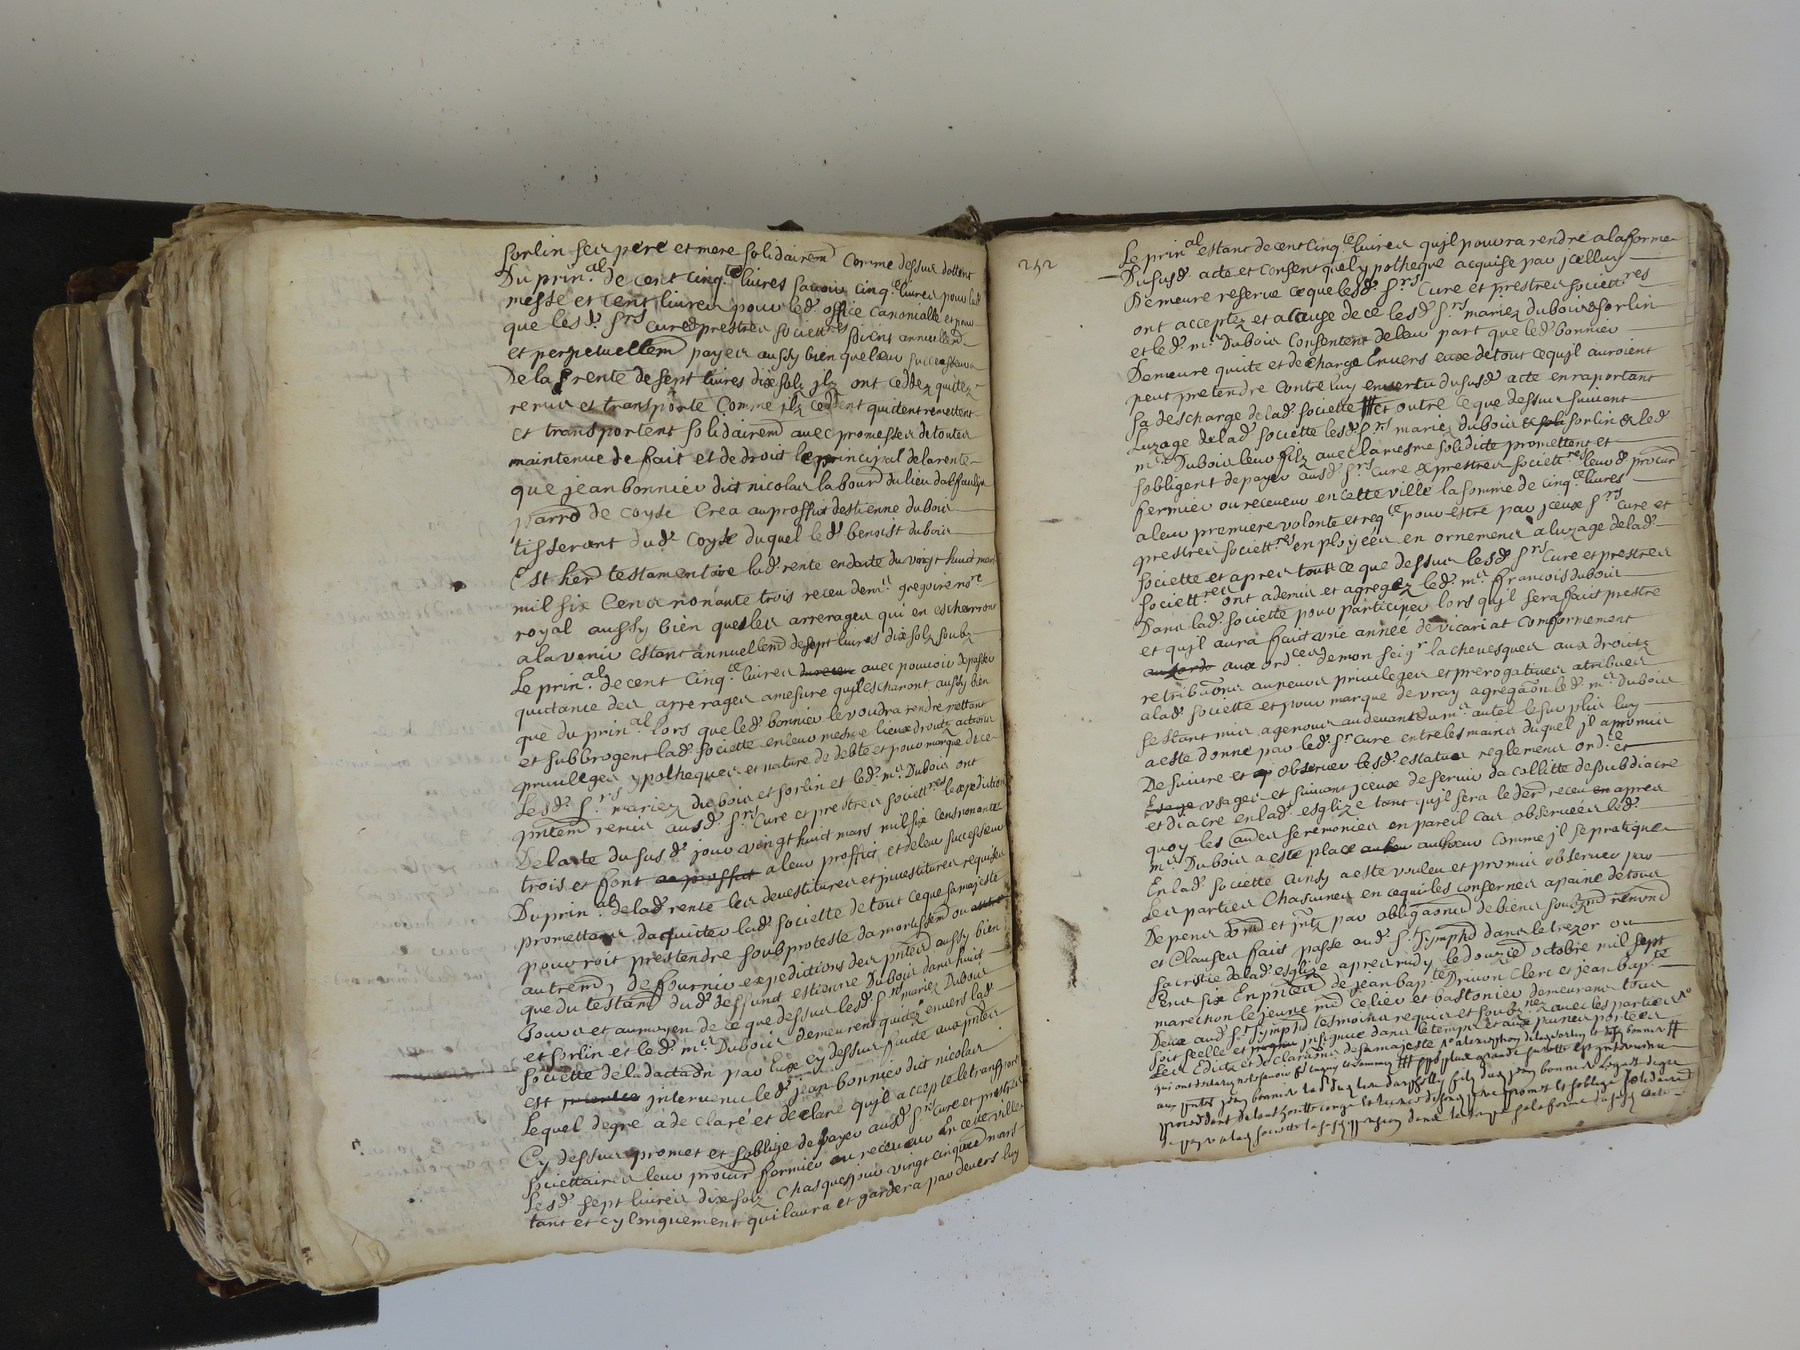 Sorlin ses pere et mere solidairem̃ comme dessus dottent
Du prin.al de cent cinq.te livres savoir cinq.te livres pour lad
messe et cent livres pour led. office canonialle et pour
que lesd. Srs Cure et prestres societt.res soient annuellem̃
et perpetuellem̃ payes aussy bien que leur successeurs
De la rente de sept livres dix solz jlz ont ceddez quittez
remis et transporte Comme jlz ceddent quictent remettent
et transportent solidairem̃ avec promesses de toutes
maintenue de fait et de droit le principal de la rente
que jean bonnier dict nicolas labour̃ du lieu
parr̃o de coyse Crea au proffit destienne dubois
tisserant dud. Coyse duquel led. benoist dubois
Est her̃ testamentaire lad. rente en datte du vingt huict mars
mil six Cens nonante trois receu de mr. gregoire no.re
royal aussy bien que les arrerages qui en escherront
a lavenir estant annuellem̃ de sept livres dix solz soubz
Le prin.al de cent cinq.te livres avec pouvoir de passer
quictance des arrerages a mesure quilz escharont aussy bien
que du prin.al lors que led. bonnier le voudra rendre mettant
et subbrogent lad. societte en leur mesme lieux droictz actions
privileges ypotheques et nature de debte et pour marque de ce
Lesd. Srs mariez dubois et sorlin et led. mr. Dubois ont
pñtem̃ remis ausd. Srs Cure et prestres societt.res lexpedition
De lacte du susd. jour vingt huict mars mil six Cens nonante
trois et font au proffict a leur proffict et de leur successeurs
Du prin.al de lad. rente les devestitures et jnvestitures requises
promettans dacquitter lad. societte de tout ce que sa majeste
pouvroit prestendre soub proteste damortissem̃ ou
autrem̃, de fournir expeditions des pñtes aussy bien
que du testam̃ dud. deffunct estienne Dubois dans huict
Jours et au moyen de ce que dessus lesd. Srs mariez Dubois
et sorlin et led. mr. Dubois demeurent quictes envers lad.
societte de la par Eux cy dessus faitte aux pñtes
est jntervenu led. jean bonnier dict nicolas
Lequel de gre a declaré et declare qujl accepte le transport
Cy dessus promet et soblige de payer ausd. Srs Cure et prestres
societtaires leur procur̃ fermier ou receveur En cette ville
Lesd. sept livres dix solz Chasques jour vingt cinquie mars
tant et cy longuement qui laura et gardera par devers luy
252
Le prin.al estant de cent cinq.te livres qujl pourra rendre a la forme
Du susd. acte et consent que lypotheque acquise par jcelluy
Demeure reserve ce que lesd. Srs Cure et prestres societt.res
ont acceptez et a cause de ce lesd. Srs mariez dubois & sorlin
et led. mr. Dubois Consentent de leur part que led. bonnier
Demeure quicte et de charge Envers eux de tout ce qujl auroient
peut pretendre contre luy en vertu du susd. acte en raportant
sa descharge de lad. societte # et outre ce que dessus suivant
Luzage de lad. societte lesd. Srs mariez dubois & sorlin & led.
mr. Dubois leur filz avec la mesme solidicte promettent et
sobligent de payer ausd. Srs Cure & prestres societt.res leurd. procur̃
fermier ou receveur en cette ville la somme de cinq.te livres
a leur premiere volonte et req.te pour estre par jceux Srs Cure et
prestres societt.res employees en ornemens a luzage de lad.
societte et apres tout ce que dessus lesd. Srs Cure et prestres
societt.res ont ademis et agregez led. mr. francois dubois
Dans lad. societte pour participer lors qujl sera fait prestre
et qujl aura fait une année de vicariat Comformement
aux ord.ces de mon seigr. larchevesques aux droictz
retribuãons privileges et prerogatives atribues
a lad. societte et pour marque de vray agregãon led. mr. Dubois
sestant mis a genoux au devant du mr. autel le surplis luy
a este donne par led. Sr Cure entre les mains duquel jl a promis
De suivre et observer lesd. estatus reglemens ord.ce et
Esage usages et suivant jceux de servir da Collitte de soubdiacre
et diacre en lad. esglize tant qujl sera le der̃ receu en apres
quoy les Cauder seremonies en pareil cas observees led.
mr. Dubois a este place au cœur comme jl se pratique
En lad. societte Ainsy a este voulu et promis observer par
Les parties Chascunes en ce qui les conserne a paine de tous
Depens et par obligãons de biens
et Clauses fait passe aud. St. Symph̃ dans le trezor ou
sacristie de lad. esglize apres midy le douzie octobre mil sept
Cens six En pñce de jean bap.te Drivon Clerc et jean bap.te
marechon le jeune m̃e Celier et bastonier demeurans tous
Deux aud. St. Symph̃ tesmoins requis et soubz.nez avec les parties
soit seelle et jnsignue dans le temps et aux paines portees
Les Edicts et declarãons de sa majeste